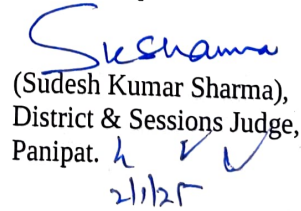 SKSharma
(Sudesh Kumar Sharma),
District & Sessions Judge,
Panipat.
2/1/25